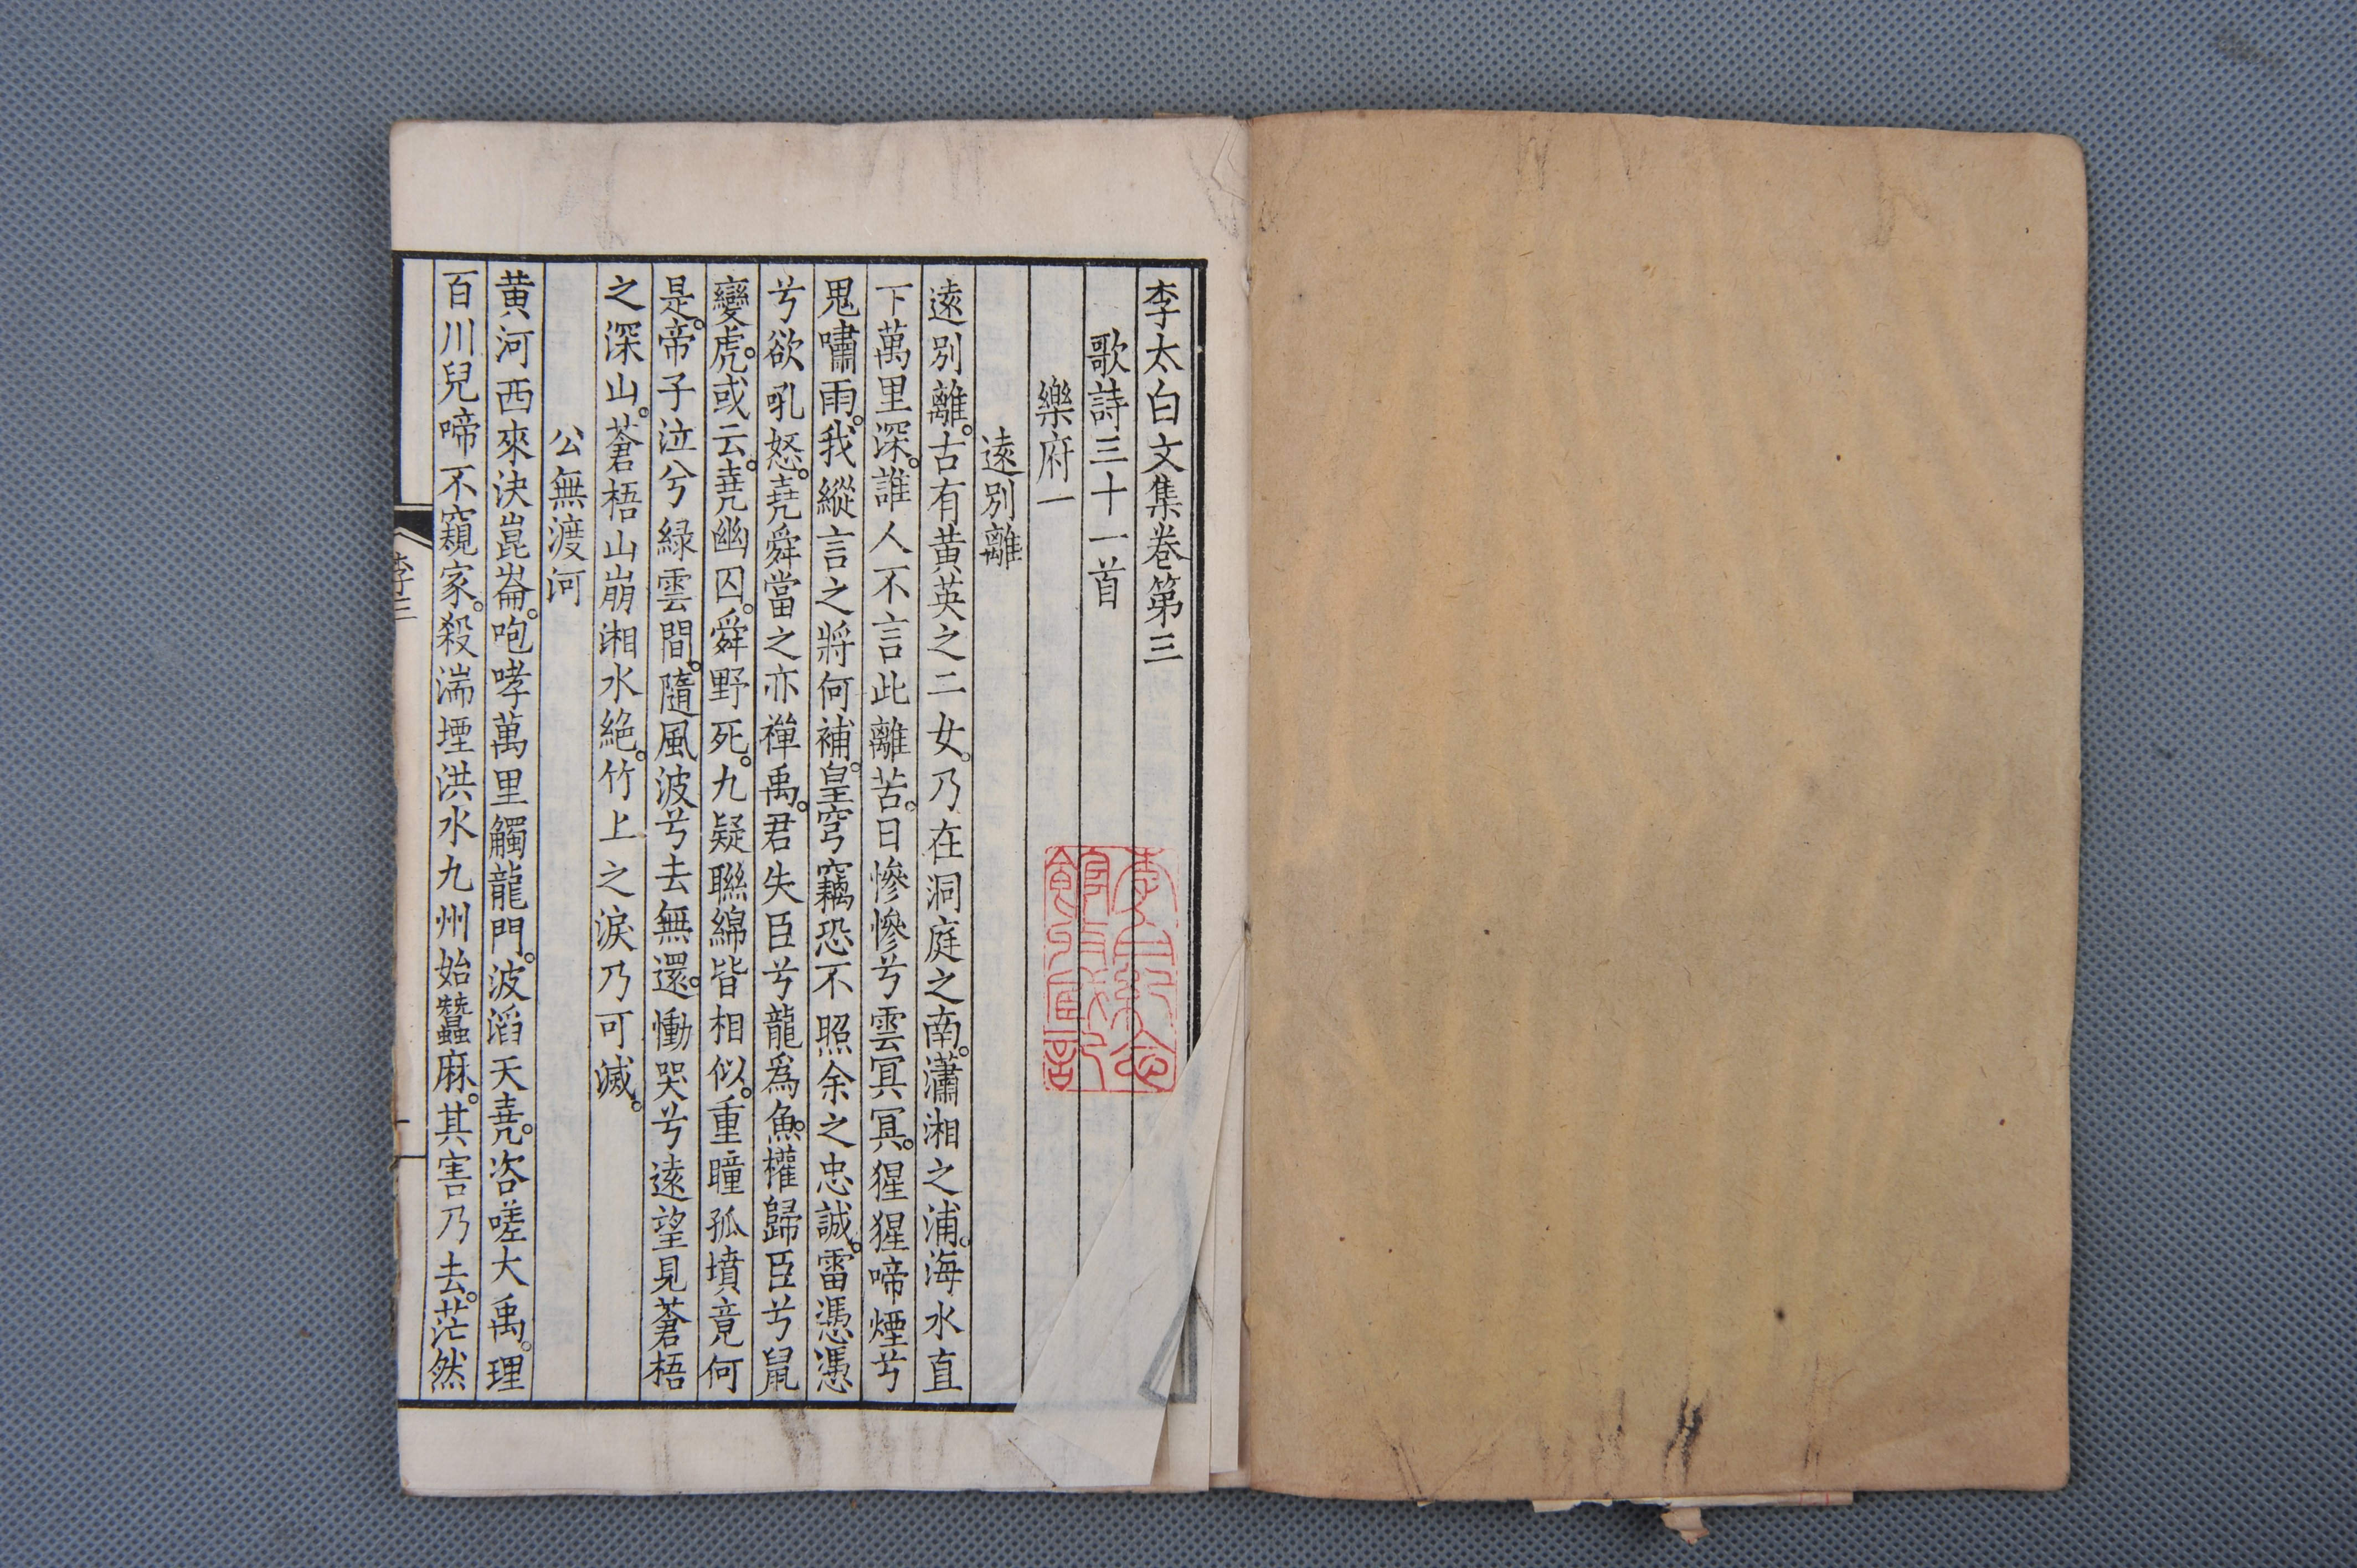 李太白文集卷第三
歌詩三十一首
樂府一
遠別離
遠別離。古有黃英之二女。乃在洞庭之南。瀟湘之浦。海水直
下萬里深。誰人不言此離苦。日慘慘兮雲冥冥。猩猩啼煙兮
鬼嘯雨。我縱言之將何補。皇穹竊恐不照余之忠誠。雷憑憑
兮欲吼怒。堯舜當之亦禪禹。君失臣兮龍爲魚。權歸臣兮鼠
變虎。或云。堯幽囚。舜野死。九疑聯綿皆相似。重瞳孤墳竟何
是。帝子泣兮綠雲間。隨風波兮去無還。慟哭兮遠望見蒼梧
之深山。蒼梧山崩湘水絶。竹上之淚乃可滅。
公無渡河
黃河西來決崑崙。咆哮萬里觸龍門。波滔天堯。咨嗟大禹。理
百川兒啼不窺家。殺湍堙洪水九州始蠶麻。其害乃去。茫然
李三
李白紀念館收藏圖記